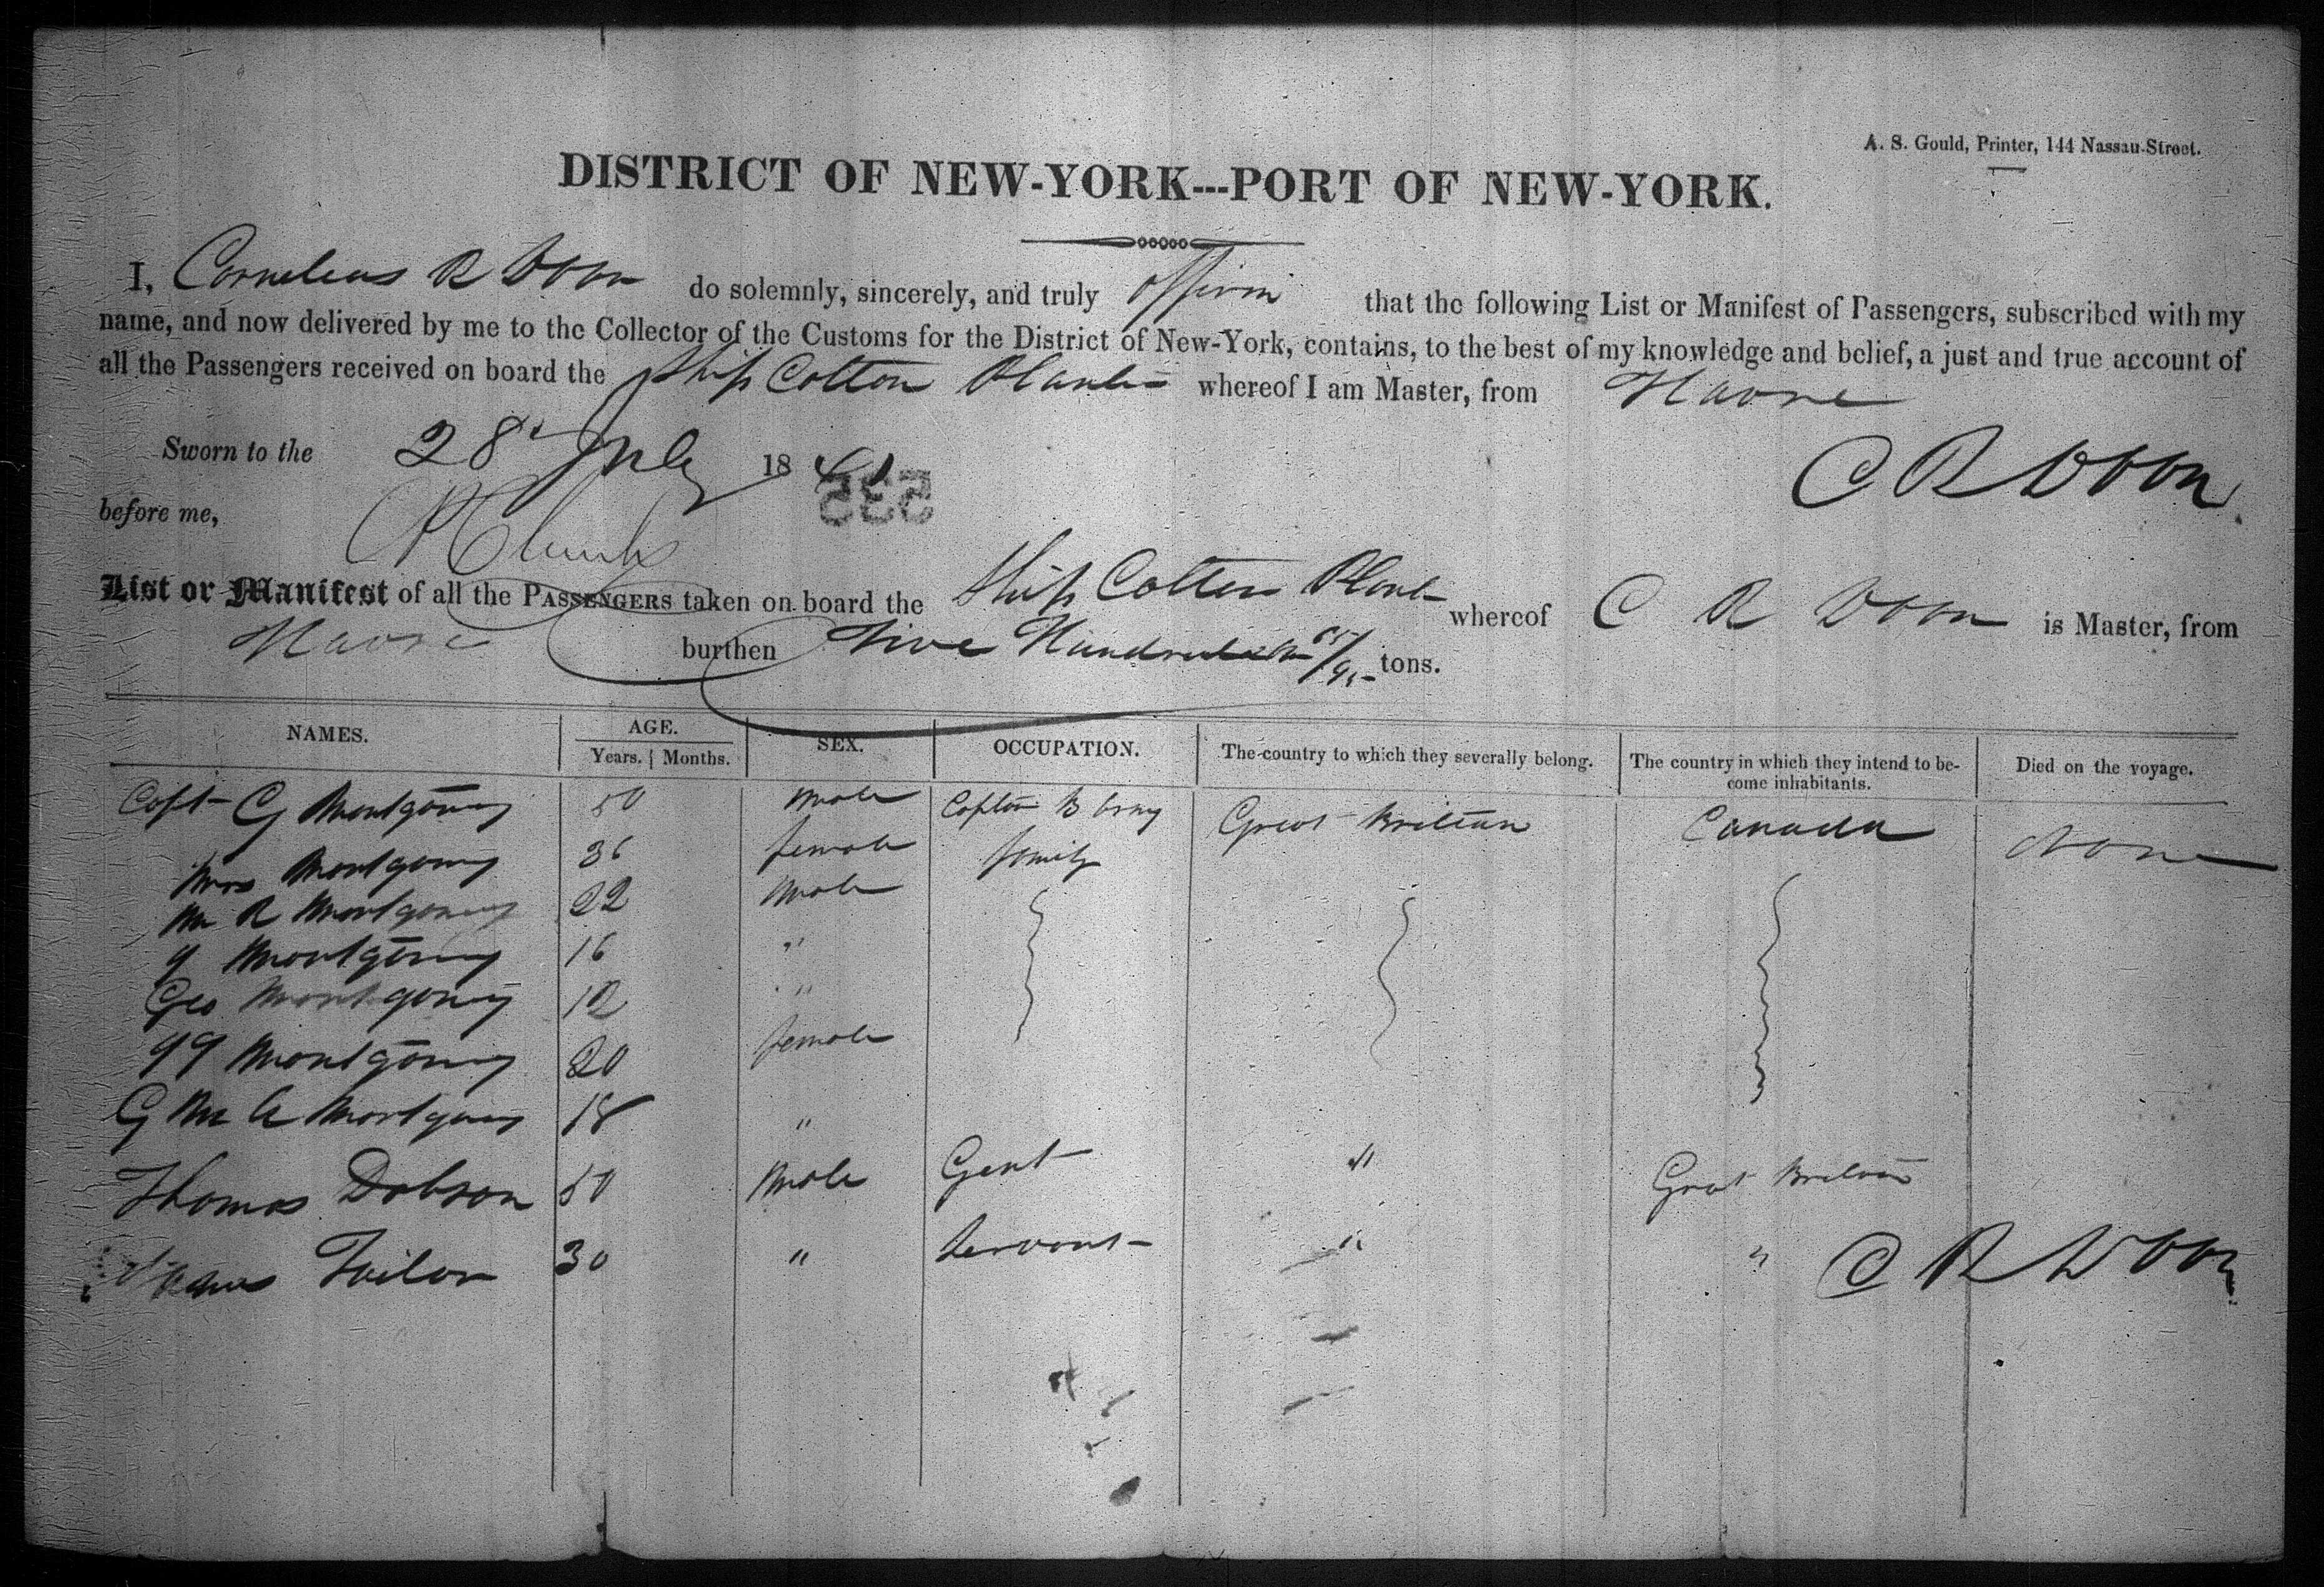 A. S. Gould, Printer, 144 Nassau-Street.
DISTRICT OF NEW-YORK---PORT OF NEW-YORK.
I, Cornelius R Doon do solemnly, sincerely, and truly affirm that the following List or Manifest of Passengers, subscribed with my
name, and now delivered by me to the Collector of the Customs for the District of New-York, contains, to the best of my knowledge and belief, a just and true account of
all the Passengers received on board the Ship Cotton Planter whereof I am Master, from Havre
Sworn to the 28 July 1841
C R Doon
before me,
535
List or Manifest of all the PASSENGERS taken on board the Ship Cotton Plant whereof C R Doon is Master, from
Havre burthen Five Hundred /95 tons.
NAMES. AGE. SEX. OCCUPATION. The country to which they severally belong. The country in which they intend to be- Died on the voyage.
Years. Months. come inhabitants.
Capt G Montgomery 50 male Captain B Army Great Britain Canada None
Mrs Montgomery 36 female family
Mr R Montgomery 22 male
Montgomery 16 "
Geo Montgomery 12 "
Montgomery 20 female
G M A Montgomery 18 "
Thomas Dobson 50 male Gent " Great Britain
Tailor 30 " Servant " "
C R Doon